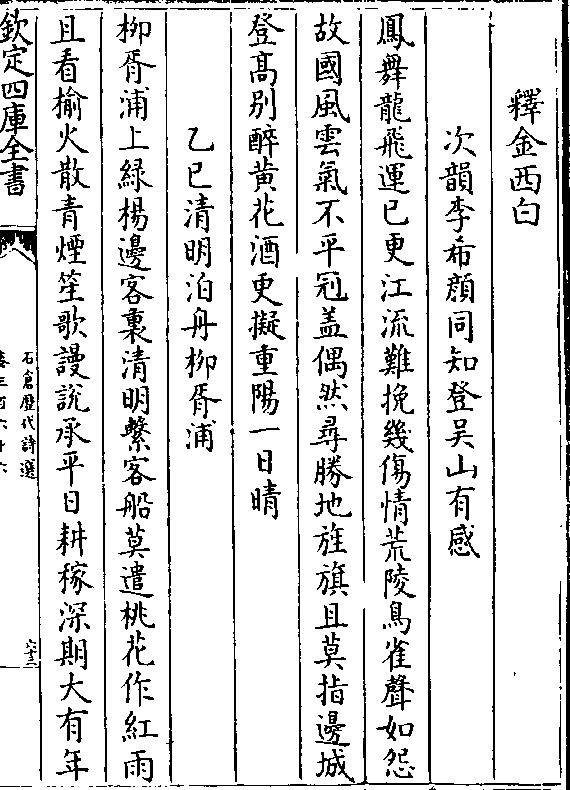 釋金西白
次韻李希顔同知登吴山有感
鳳舞龍飛運已更江流難挽幾傷情荒陵鳥雀聲如怨
故國風雲氣不平冠盖偶然尋勝地旌旗且莫指邊城
登髙别醉黄花酒更擬重陽一日晴
乙巳清明泊舟柳胥浦
柳胥浦上綠楊邊客裏清明繫客船莫遣桃花作紅雨
且看榆火散青煙笙歌謾說承平日耕稼深期大有年
欽定四庫全書
石倉歴代詩選
卷三百六十六
六十三